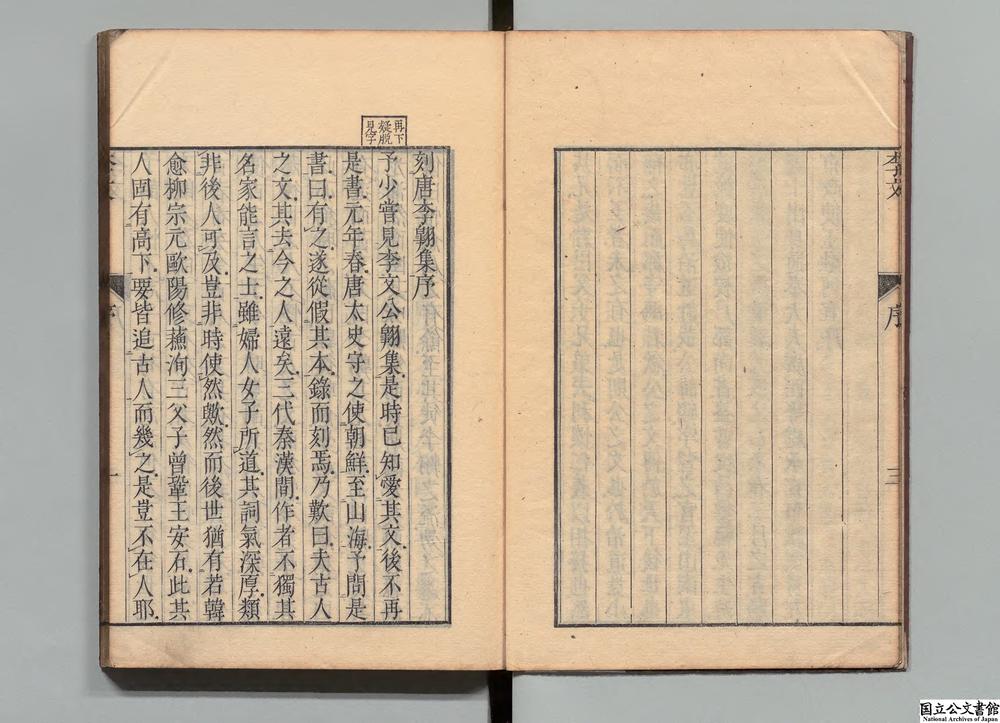 李文
序
三
再下
疑脱
見字
刻唐李翺集序
予少嘗見李文公翺集是時已知愛其文後不再
是書元年春唐太史守之使朝鮮至山海予問是
書曰有之遂從假其本錄而刻焉乃歎曰夫古人
之文其去今之人遠矣三代秦漢間作者不獨其
名家能言之士雖婦人女子所道其詞氣深厚類
非後人可及豈非時使然歟然而後世猶有若韓
愈柳宗元歐陽修蘓洵三父子曾鞏王安石此其
人固有高下要皆追古人而幾之是豈不在人耶
一
国立公文書館
National Archives of Japan